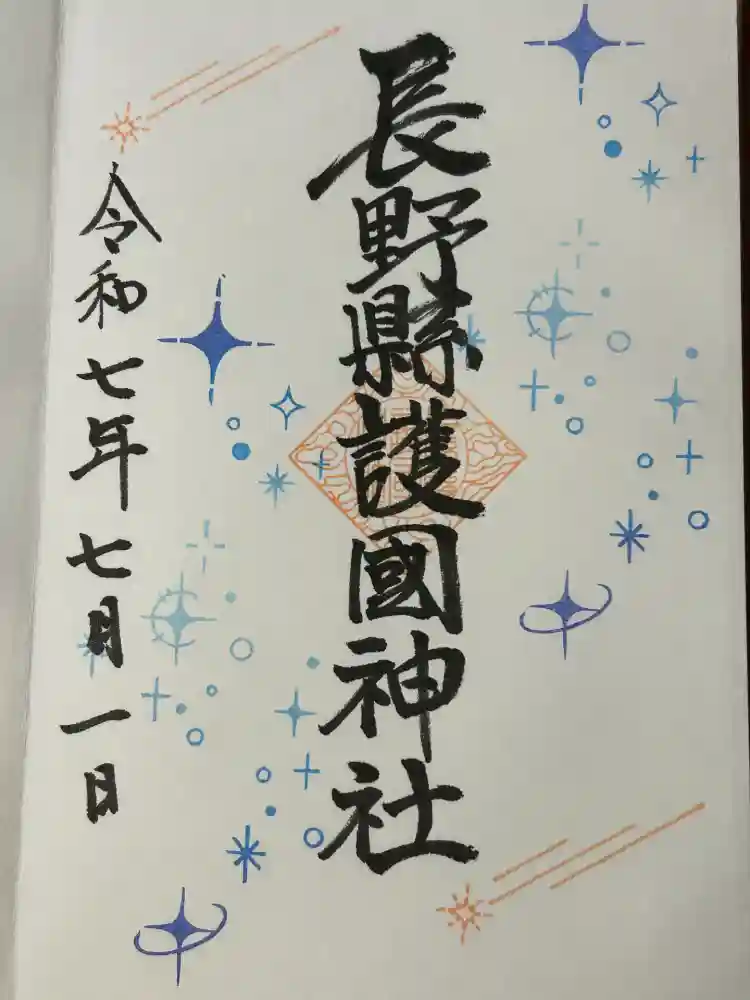 長野縣護國神社
令和七年七月一日